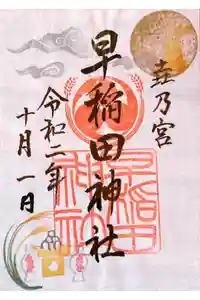 乃宮
早稲田神社
令和二年
十月一日
早稲田
神社